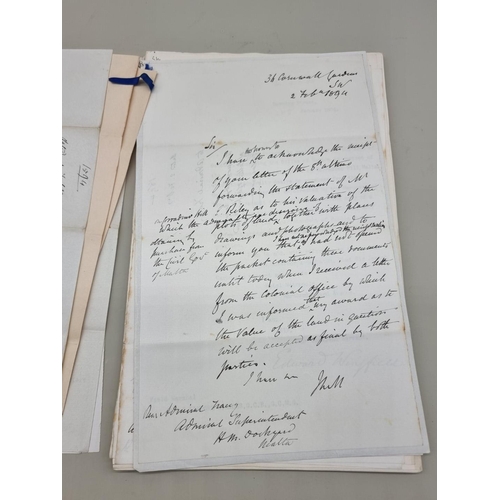 36 Cornwall Gardens
SW
2 Feb 1894
Sir
I have to acknowledge the receipt
of your letter of the 8th ultimo
forwarding the statement of Mr
Riley as to his valuation of the
plots of land together with plans
Drawings and photographs and to
inform you that I had not opened
the packet containing these documents
until today when I received a letter
from the Colonial office by which
I was informed that my award as to
the Value of the land in question
will be accepted as final by both
parties.
I have
which the Admiralty
purchase from
the Civil Govt
of Malta
Rear Admiral Tracey
Admiral Superintendent
H.M. Dockyard
Malta